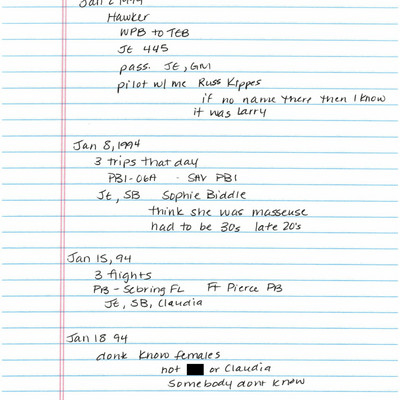 Jan 2 1994
Hawker
WPB to TEB
JE 445
pass. JE, GM
pilot w/ me Russ Kippes
if no name there then I know
it was Larry
Jan 8, 1994
3 trips that day
PBI-06A - SAV PBI
JE, SB Sophie Biddle
think she was masseuse
had to be 30s late 20's
Jan 15, 94
3 flights
PB - Sebring FL Ft Pierce PB
JE, SB, Claudia
Jan 18 94
dont know females
not or Claudia
Somebody dont know